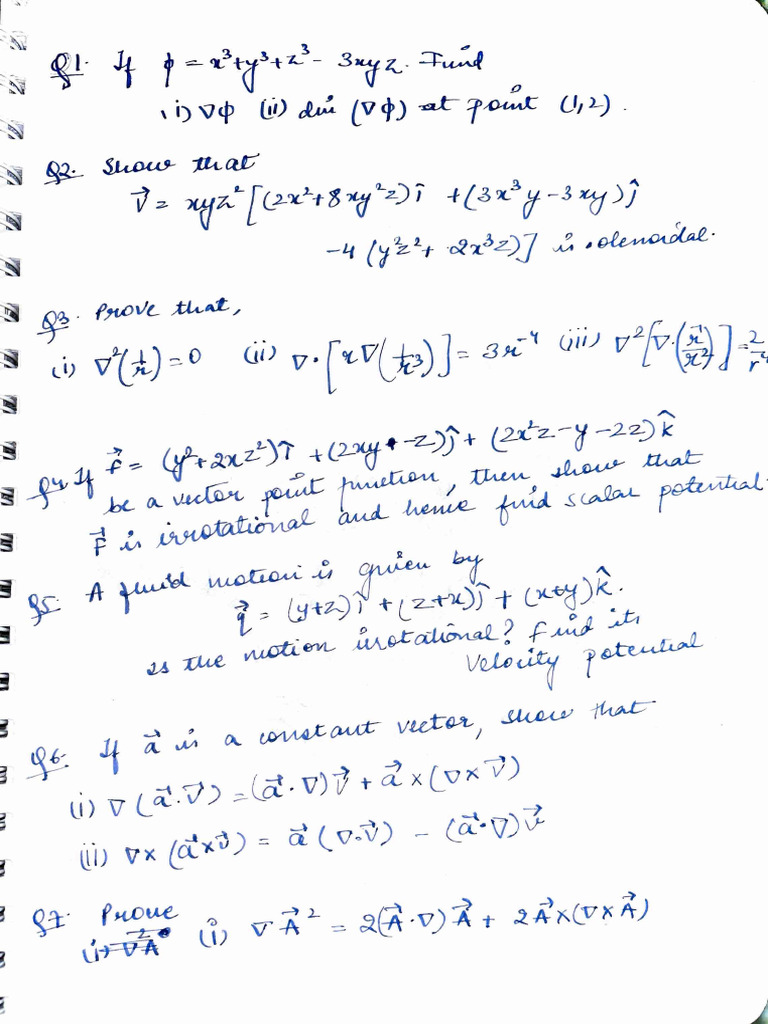 Q1. If φ = x³+y³+z³ - 3xyz. Find
(i) ∇φ (ii) div (∇φ) at point (1,2).
Q2. Show that
V⃗ = xyz² [(2x²+8xy²z)î + (3x³y-3xy)ĵ
-4 (y²z²+ 2x³z)] is solenoidal.
Q3. Prove that,
(i) ∇²(1/r) = 0 (ii) ∇·[r∇(1/r³)] = 3r⁻⁴ (iii) ∇²[∇·(r⃗/r²)] = 2/r⁴
Q4. If F⃗ = (y²+2xz²)î + (2xy - z)ĵ + (2x²z-y-2z)k̂
be a vector point function, then, show that
F⃗ is irrotational and hence find scalar potential.
Q5. A fluid motion is given by
q⃗ = (y+z)î + (z+x)ĵ + (x+y)k̂.
is the motion irotational? Find its
velocity potential
Q6. If a⃗ is a constant vector, show that
(i) ∇(a⃗·V⃗) = (a⃗·∇)V⃗ + a⃗×(∇×V⃗)
(ii) ∇×(a⃗×v⃗) = a⃗(∇·v⃗) - (a⃗·∇)v⃗
Q7. Prove
(i) ∇A⃗² = 2(A⃗·∇)A⃗ + 2A⃗×(∇×A⃗)